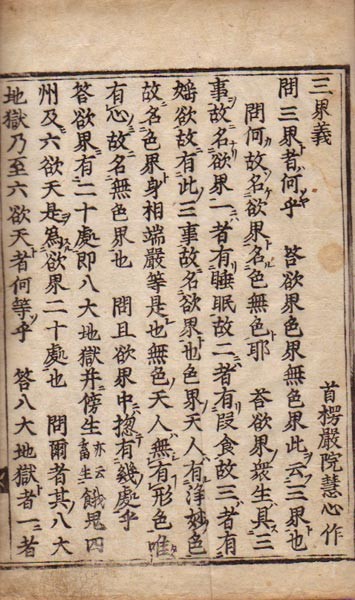 三界義
首楞嚴院慧心作
問三界者何乎 答欲界色界無色界此云三界也
問何故名欲界名色無色耶 荅欲界衆生具三
事故名欲界一者有睡眠故二者有段食故三者有
婬欲故有此三事故名欲界也色界天人有淨妙色
故名色界身相端嚴等是也無色天人無有形色唯
有心故名無色界也 問且欲界中惣有幾處乎
答欲界有二十處即八大地獄幷傍生亦云畜生餓鬼四
州及六欲天是為欲界二十處也 問爾者其八大
地獄乃至六欲天者何等乎 答八大地獄者一者